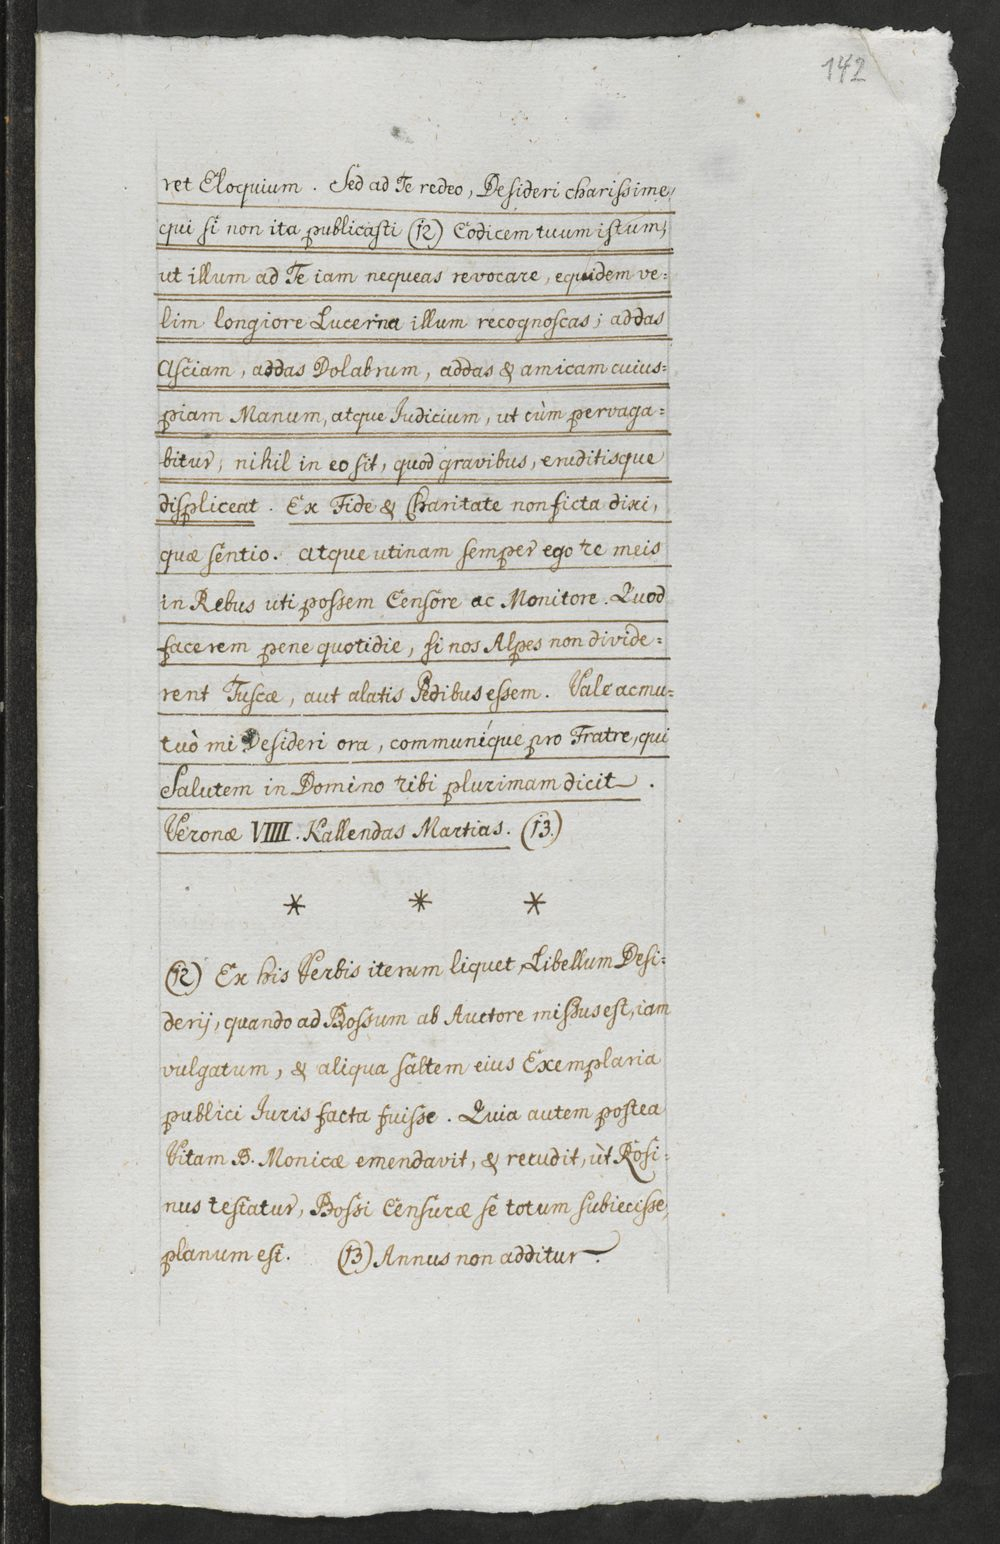 142
ret Eloquium. Sed ad Te redeo, Desideri charissime,
qui si non ita publicasti (12) Codicem tuum istum,
ut illum ad Te iam nequeas revocare, equidem ve=
lim longiore Lucerna illum recognoscas; addas
Asciam, addas Dolabrum, addas & amicam cuius=
piam Manum, atque Iudicium, ut cùm pervaga=
bitur, nihil in eo sit, quod gravibus, eruditisque
displiceat. Ex Fide & Charitate non ficta dixi,
quæ sentio. Atque utinam semper ego te meis
in Rebus uti possem Censore ac Monitore. Quod
facerem pene quotidie, si nos Alpes non divide=
rent Tuscæ, aut alatis Pedibus essem. Vale ac mu=
tuò mi Desideri ora, communíque pro Fratre, qui
Salutem in Domino tibi plurimam dicit.
Veronæ VIIII. Kallendas Martias. (13.)
* * *
(12) Ex his Verbis iterum liquet, Libellum Desi=
derij, quando ad Bossum ab Auctore missus est, iam
vulgatum, & aliqua saltem eius Exemplaria
publici Iuris facta fuisse. Quia autem postea
Vitam B. Monicæ emendavit, & recudit, ùt Rosi=
nus testatur, Bossi Censuræ se totum subiecisse,
planum est. (13) Annus non additur.